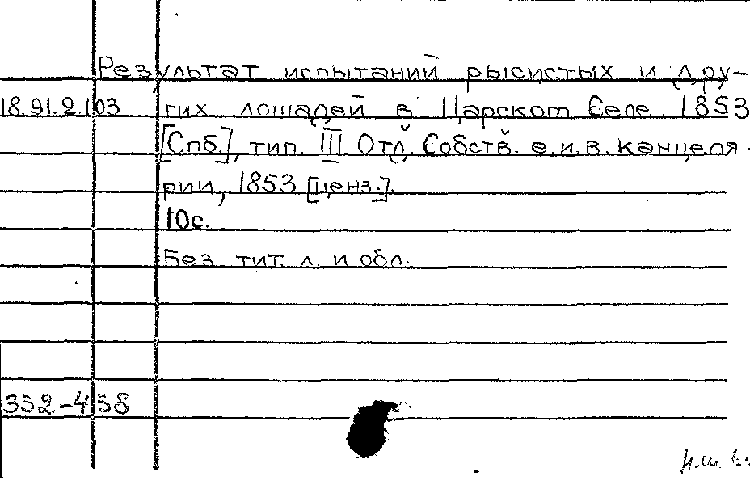 Результат испытаний рысистых и дру-
18.91.2.103 гих лошадей в Царском Селе 1853
[Спб.], тип. III Отд. Собств. е.и.в. канцеля-
рии, 1853 [ценз.].
10с.
Без тит. л. и обл.
352-458